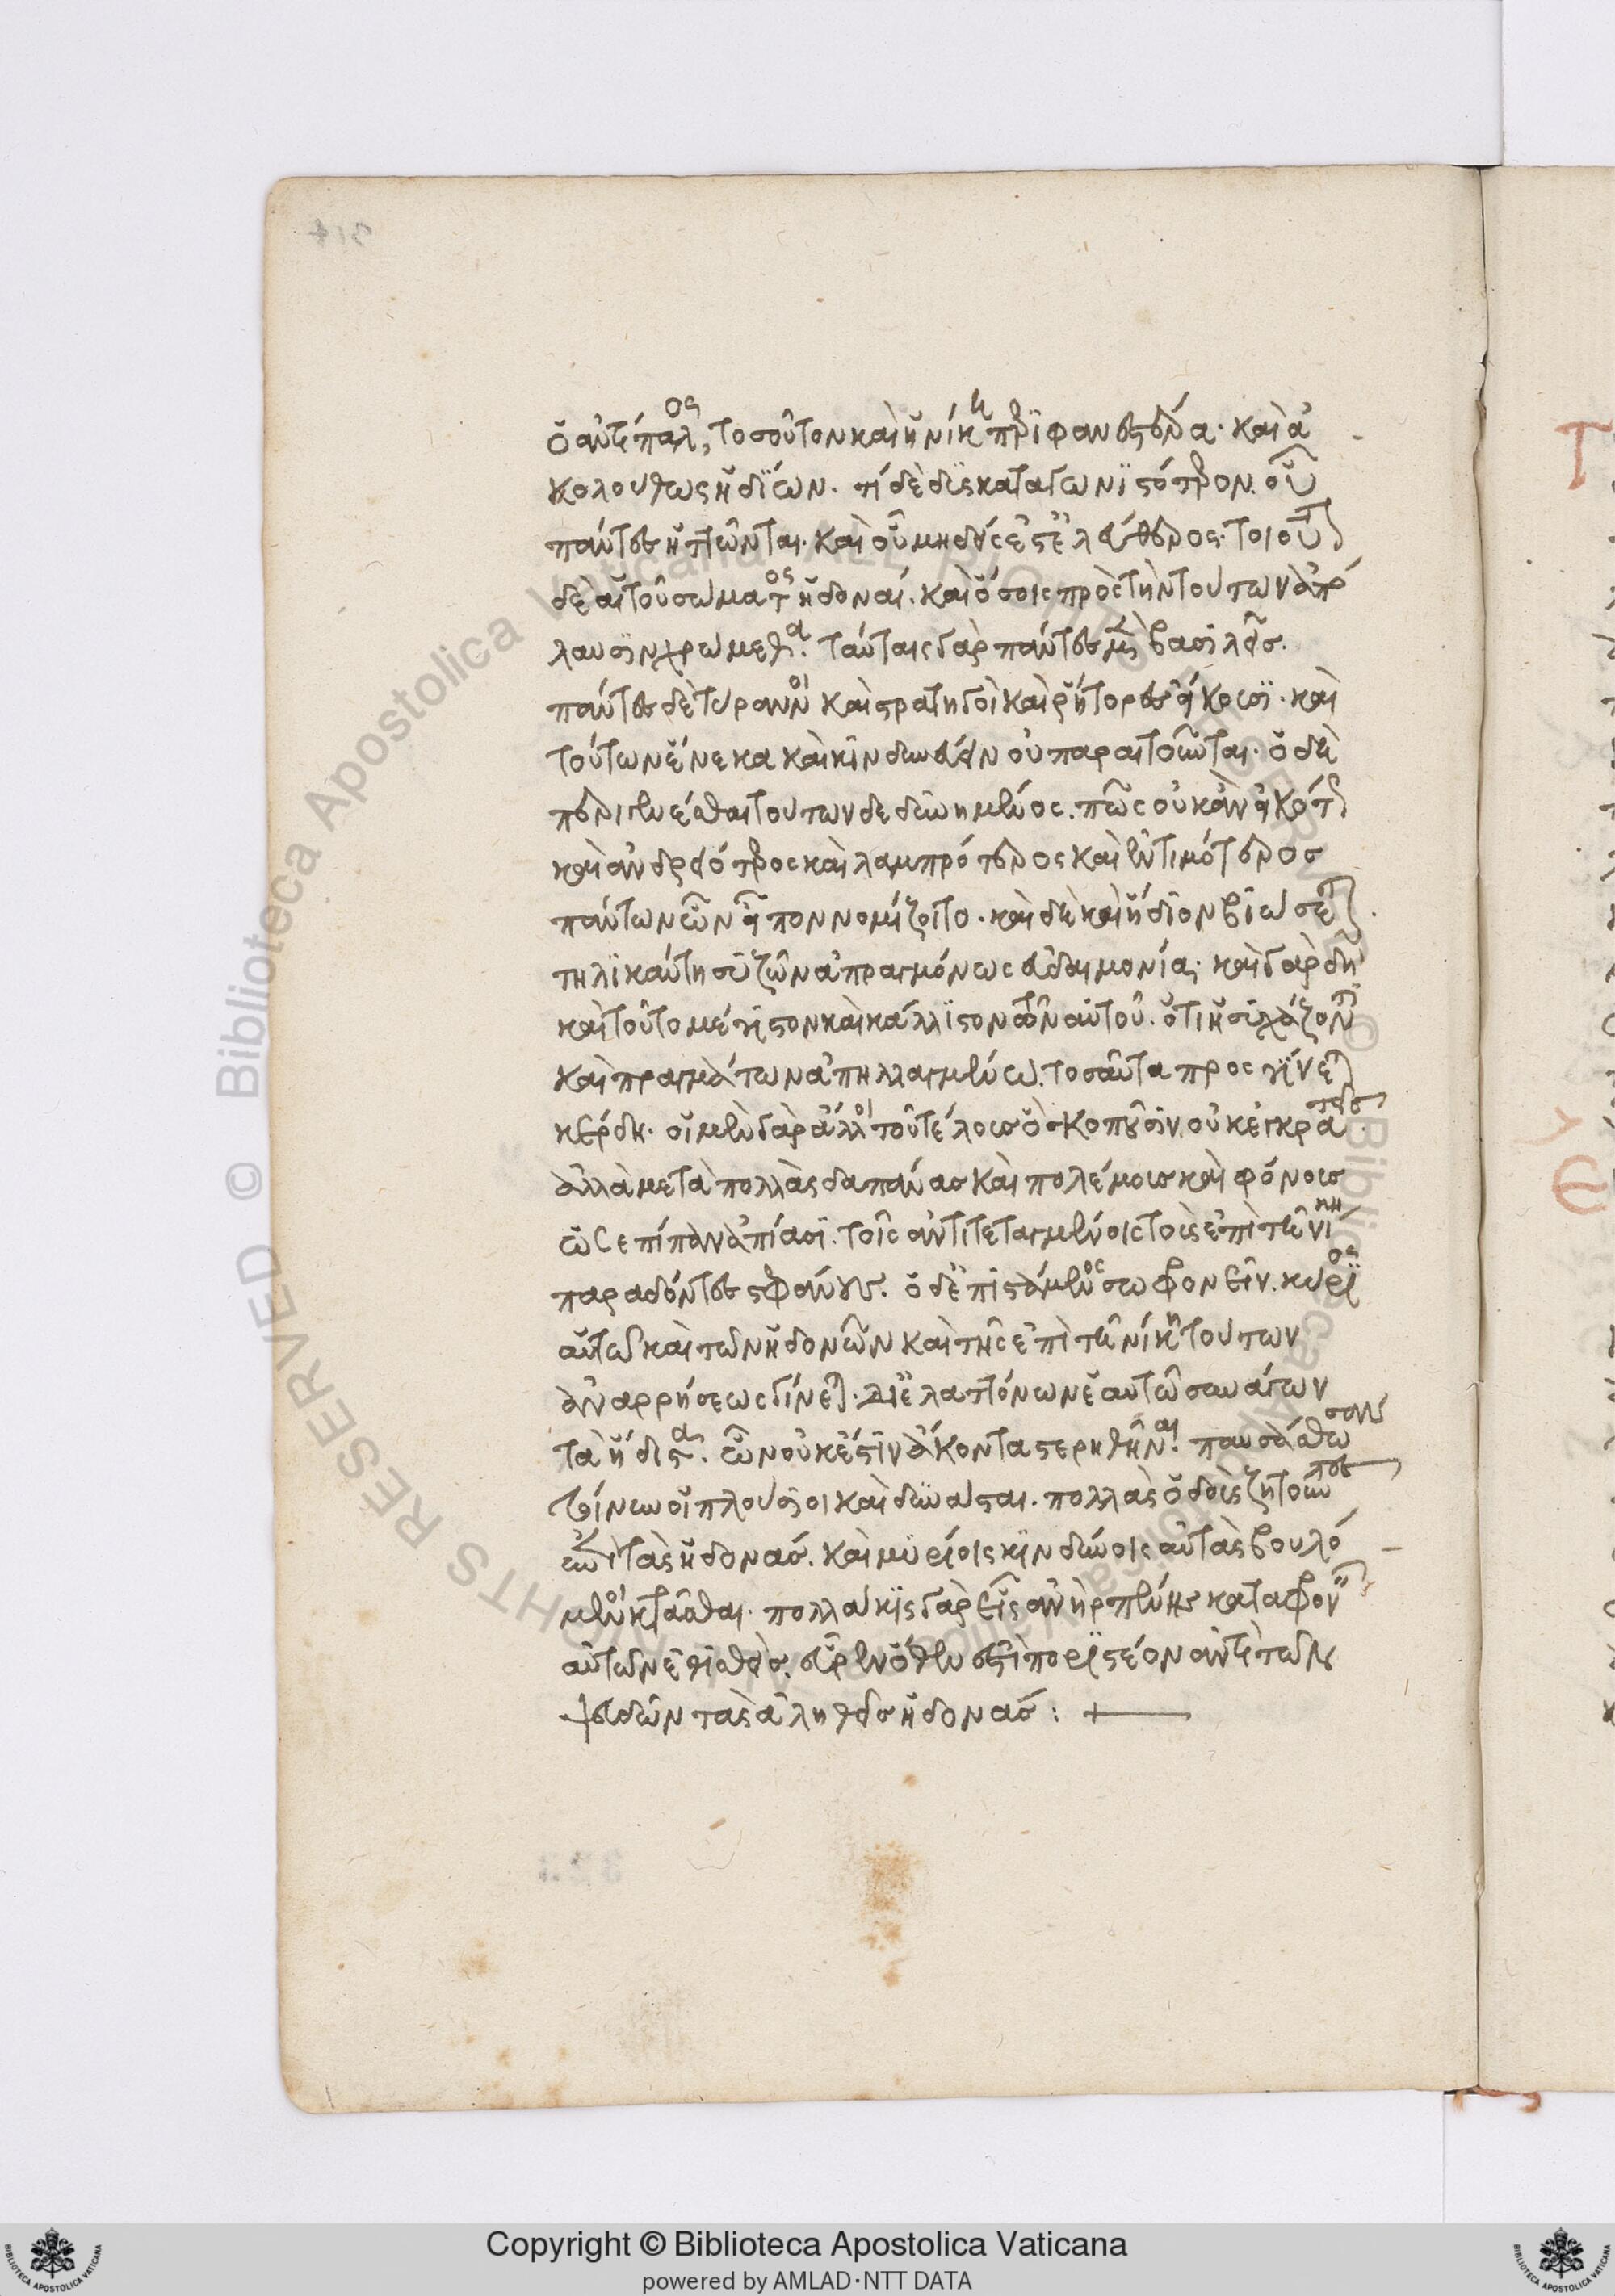 ὁ ἀντίπαλος, τοσοῦτον καὶ ἡ νίκη περιφανεστέρα. καὶ ἀ
κολούθως ἡδίων. τί δὲ δυσκαταγωνιστότερον. οὗ
πάντες ἡττῶνται. καὶ οὗ μηδείς ἐστ' ἐλεύθερος. τοιοῦτ
δὲ αἱ τοῦ σώματος ἡδοναί. καὶ ὅσοις πρὸς τὴν τούτων ἀπό
λαυσιν χρώμεθα. ταύταις γὰρ πάντες μὲν βασιλεῖς.
πάντες δὲ τύραννοι καὶ στρατηγοὶ καὶ ῥήτορες εἴκουσι. καὶ
τούτων ἕνεκα καὶ κινδυνεύειν οὐ παραιτοῦνται. ὁ δὴ
περιγενέσθαι τούτων δεδυνημένος. πῶς οὐκ ἂν εἰκότ
καὶ ἀνδρειότερος καὶ λαμπρότερος καὶ ἐντιμότερος
πάντων ὧν εἶπον νομίζοιτο. καὶ δὴ καὶ ἥδιον βιώσετ
τηλικαύτη συζῶν ἀπραγμόνως εὐδαιμονίᾳ. καὶ γὰρ δὴ
καὶ τοῦτο μέγιστον καὶ κάλλιστον τῶν αὐτοῦ. ὅτι ἡσυχάζοντ
καὶ πραγμάτων ἀπηλλαγμένω. τοσαῦτα προσγίνετ
κέρδη. οἱ μὲν γὰρ ἄλλοι τοῦ τέλους ὃ σκοποῦσιν, οὐκ ἐγκρατεῖς.
ἀλλὰ μετὰ πολλὰς δαπάνας καὶ πολέμους καὶ φόνους
ὥς ἐπίπαν ἀπίασι. τοῖς ἀντιτεταγμένοις τοῖς ἐπὶ τῶ νικη
παραδόντες στεφάνους. ὁ δ' ἐπιστάμενος σωφρονεῖν. κύριος
αὑτῶ καὶ τῶν ἡδονῶν καὶ τῆς ἐπὶ τῆ νίκη τούτων
ἀναρρήσεως γίνετ. δι' ἐλαττόνων ἑαυτῶ συνάγων
τὰ ἥδιστα. ὧν οὐκ ἔστιν ἄκοντα στερηθῆναι. παυσάσθωσαν
τοίνυν οἱ πλούσιοι καὶ δυνάσται. πολλὰς ὁδοὺς ζητοῦντες
ἐπὶ τὰς ἡδονάς. καὶ μυρίοις κινδύνοις αὐτὰς βουλό
μενοι κτᾶσθαι. πολλάκις γὰρ εἷς ἀνὴρ πένης καταφρον
αὐτῶν ἐπιθεὶς, εὗρεν ὅθεν ἐστὶ ποριστέον ἀντὶ τῶν
ψευδῶν τὰς ἀληθεῖς ἡδονάς: +
Copyright © Biblioteca Apostolica Vaticana
powered by AMLAD·NTT DATA